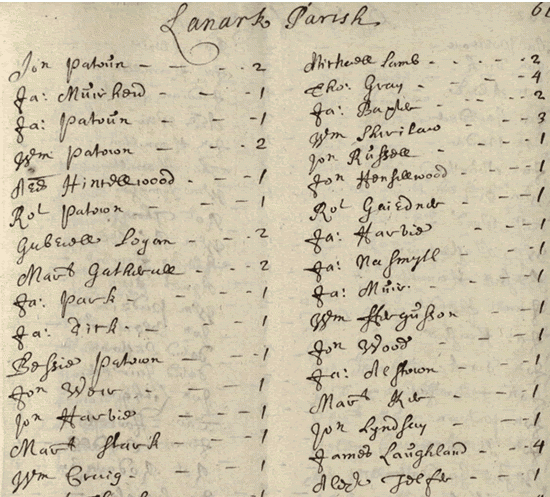 Lanark Parish
Jon Patoun - - 2
Ja: Muirherd - - 1
Ja: Patoun - - 1
Wm Patown - - 2
Hintellwood - - 1
Rot Patown - - 1
Gabriell Logan - - 2
Mart Gatherall - - 2
Ja: Park - - 1
Ja: Dick - - 1
Bessie Patown - - 1
Jon Weir - - 1
Jon Harvie - - 1
Mart Stark - - 1
Wm Craig - - 1
Michaell Lamb - - - 2
Tho: Gray - - - 4
Ja: - - - 2
Wm Shirilaw - 3
Jon Russell - - 1
Jon Hensillwood - 1
Rot Gairdner - 1
Ja: Harvie - - 1
Ja: Nasmyth - 1
Ja: Muir - - 1
Wm Ffergusson - 1
Jon Wood - - 1
Ja: - - 1
Mart Ker - - 1
Jon Lyndsay - 1
James Laughland - 4
Telfer - 1